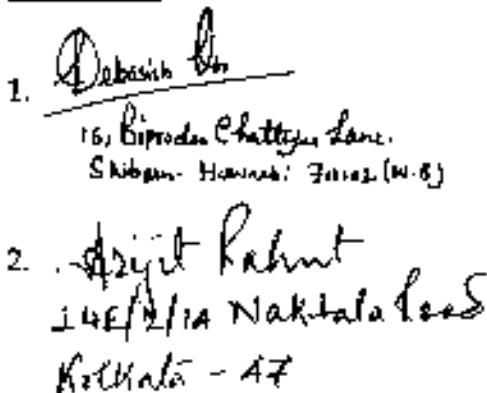 1. Debasish
16, Biprodas Chatterjee Lane.
Shibpur- Howrah: (W.B)
2. Arijit Rakshit
14E/2/1A Naktala Road
Kolkata - 47